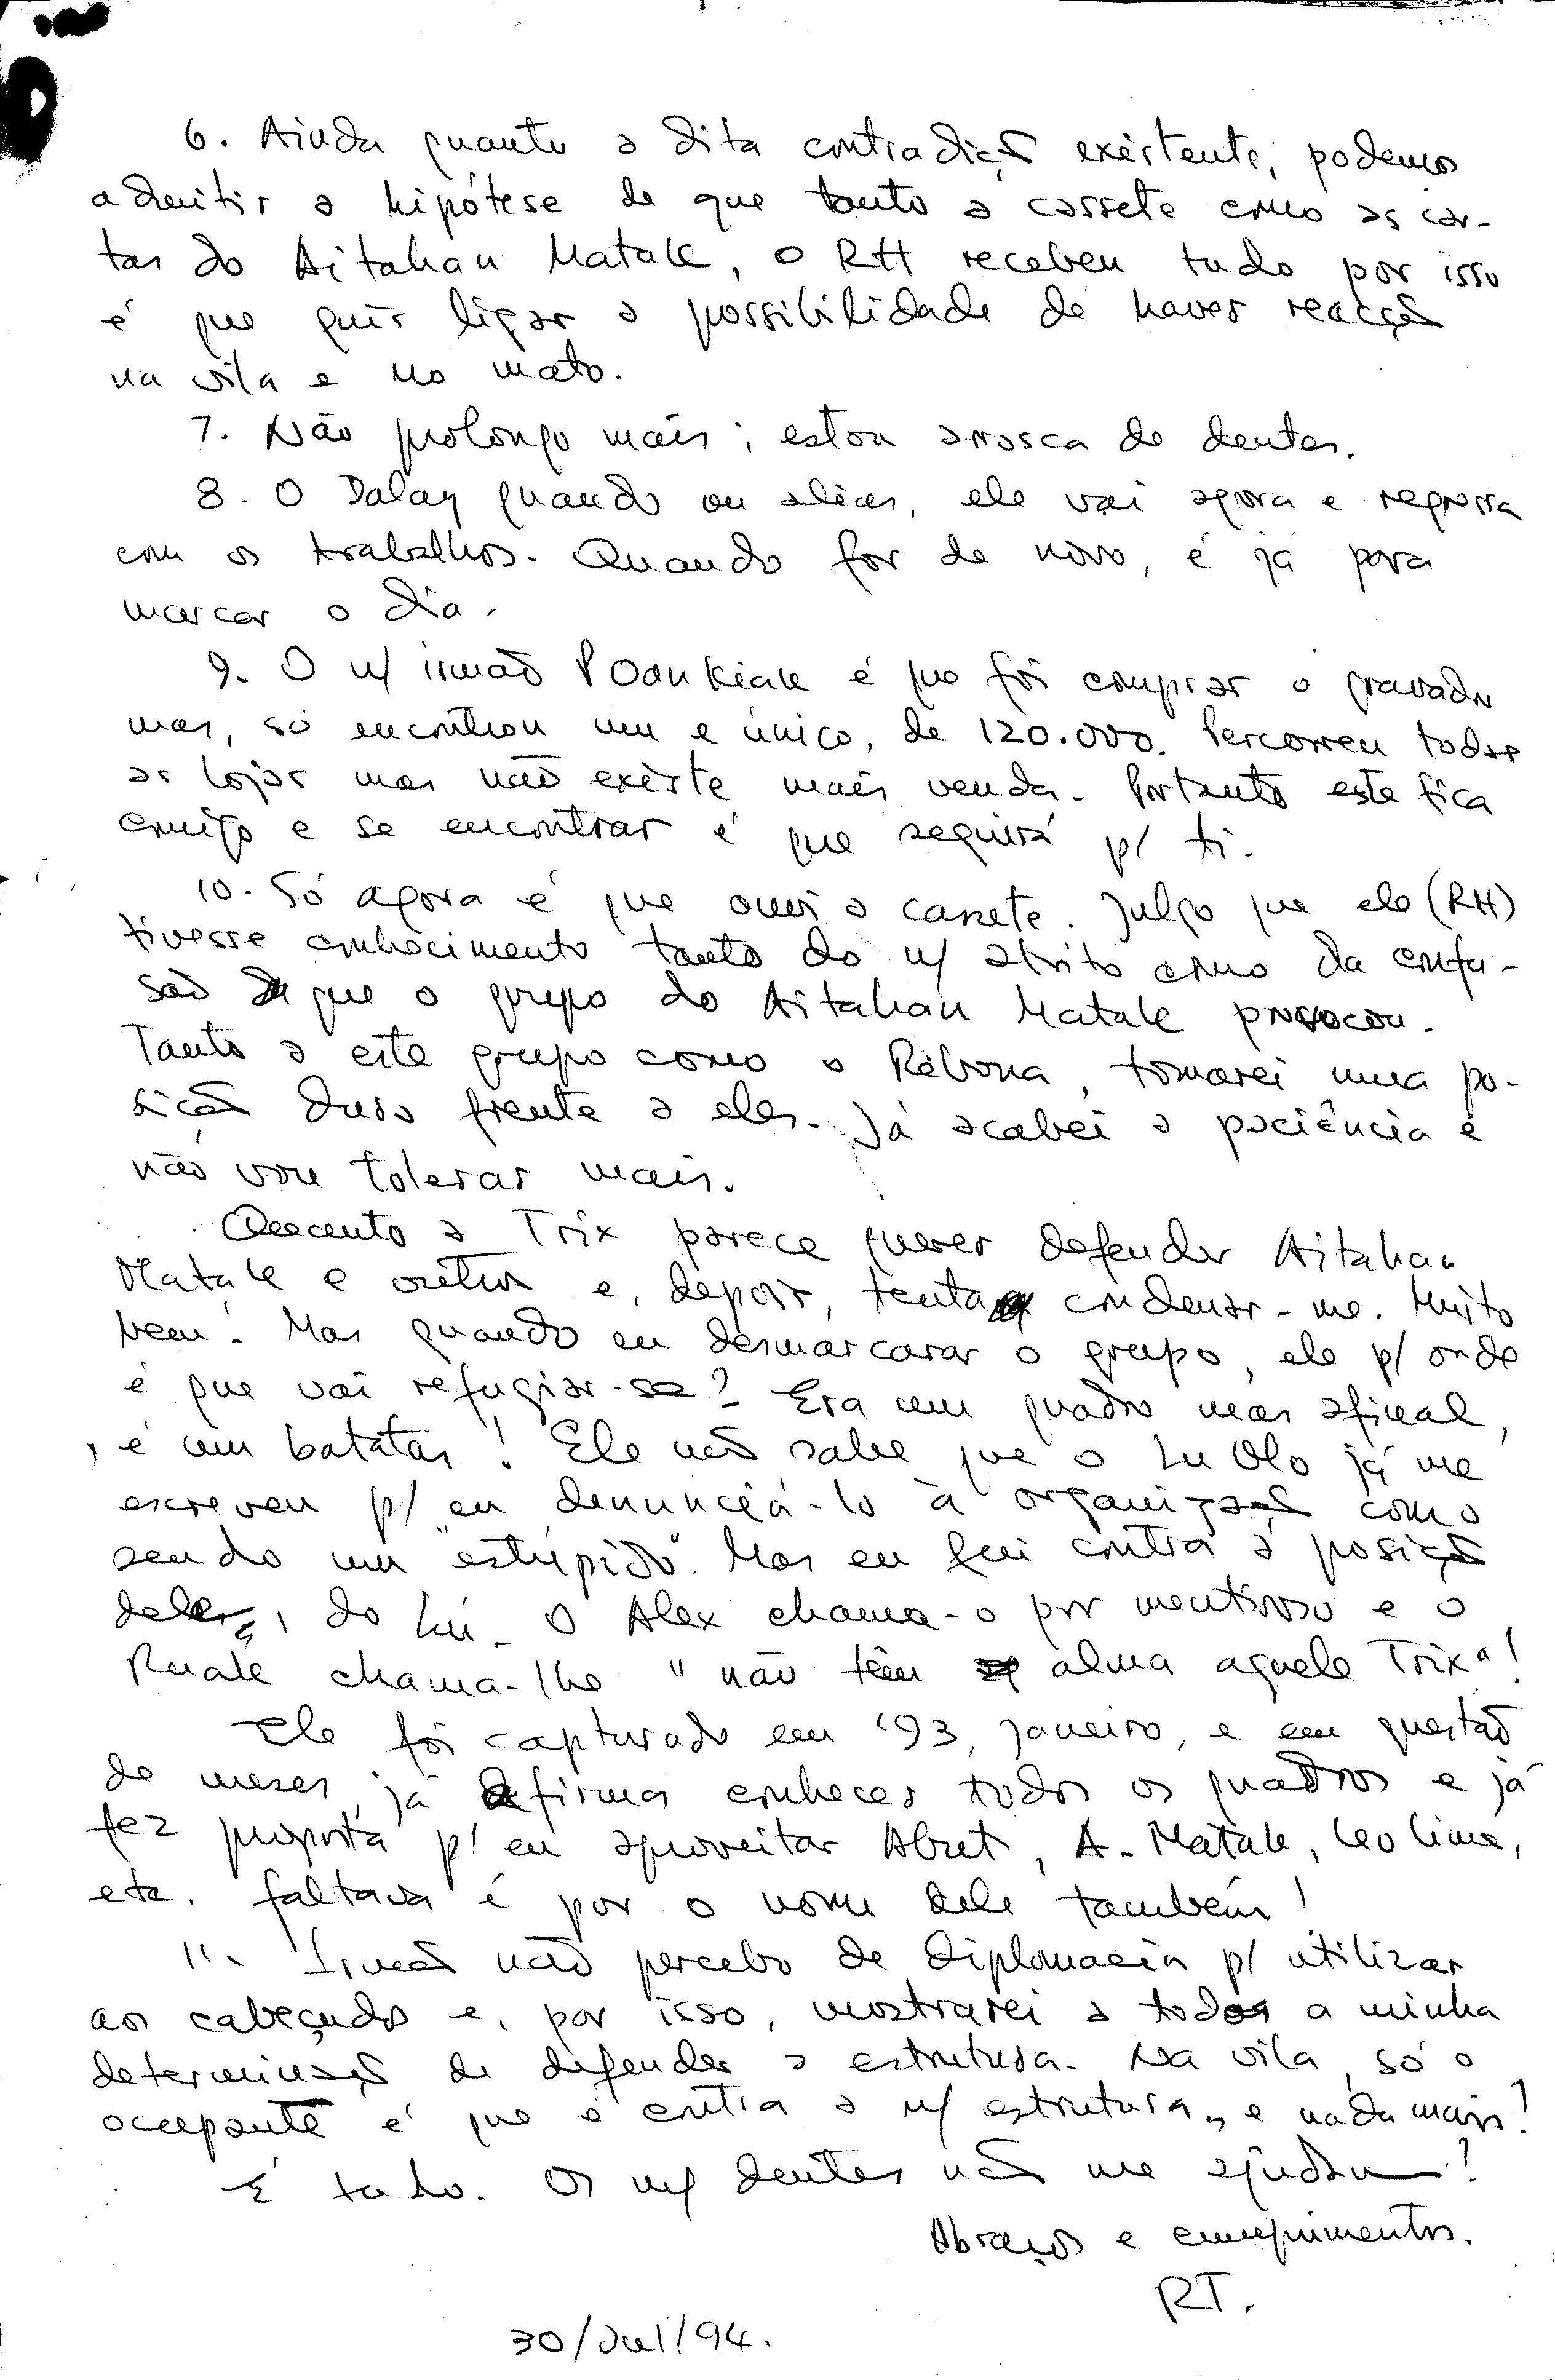 6. Ainda quanto a dita contradição existente, podemos
admitir a hipótese de que tanto a cassete como as car-
tas do Aitahan Matak, o RH recebeu tudo por isso
é que quis ligar a possibilidade de haver reacção
na vila e no mato.
7. Não prolongo mais; estou à rasca de dentes.
8. O Dalay quando ou aliás, ele vai agora e regressa
com os trabalhos. Quando for de novo, é já para
marcar o dia.
9. O n/ irmão Poan Kiak é que foi comprar o gravador
mas, só encontrou um e único, de 120.000. Percorreu todas
as lojas mas não existe mais venda. Portanto este fica
comigo e se encontrar é que seguirá p/ ti.
10. Só agora é que ouvi a cassete. Julgo que ele (RH)
tivesse conhecimento tanto do n/ atrito como da confu-
são que o grupo do Aitahan Matak provocou.
Tanto a este grupo como o Rebona, tomarei uma po-
sição dura frente a eles. Já acabei a paciência e
não vou tolerar mais.
Quanto a Trix parece querer defender Aitahan
Matak e outros e, depois, tenta condenar-me. Muito
bem! Mas quando eu desmarcarar o grupo, ele p/ onde
é que vai refugiar-se? Era um quadro mas afinal,
é um batatas! Ele não sabe que o Lu Olo já me
escreveu p/ eu denunciá-lo à organização como
sendo um "estúpido". Mas eu fui contra a posição
dele, do Lú. O Alex chama-o por mentiroso e o
Ruak chama-lhe "não têm alma aquele Trix"!
Ele foi capturado em '93, Janeiro, e em questão
de meses já afirma conhecer todos os quadros e já
fez proposta p/ eu aproveitar Abut, A. Matak, Leo Lima,
etc. faltava é por o nome dele também!
11. Irmão não percebo de diplomacia p/ utilizar
aos cabeçudos e, por isso, mostrarei a todos a minha
determinação de defender a estrutura. Na vila, só o
ocupante é que é contra a n/ estrutura, e nada mais!
É tudo. Os m/ dentes não me ajudam!
Abraços e cumprimentos.
RT.
30/Jul/94.